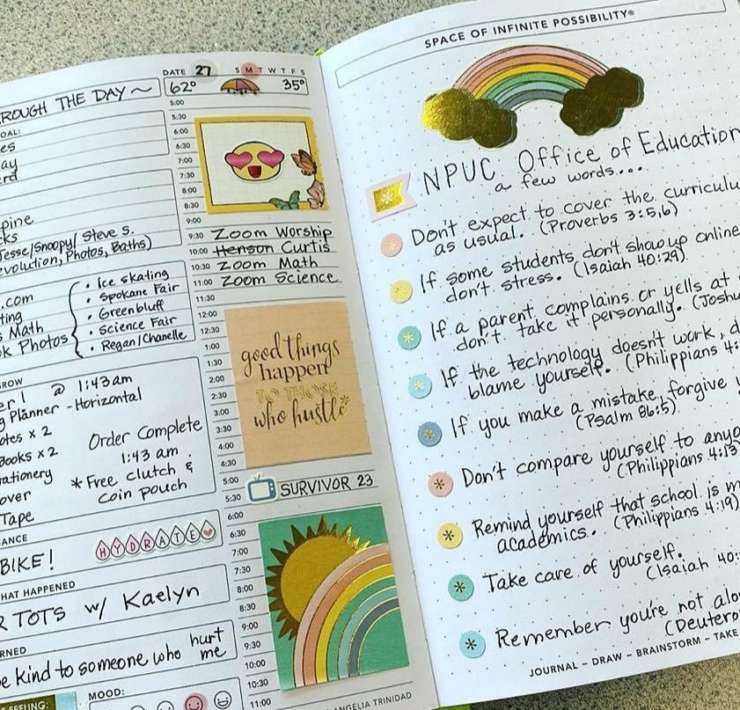 ROUGH THE DAY ~
OAL:
es
ay
rd
pine
ks
Jesse/Snoopy/ Steve S.
evolution, Photos, Baths)
.com
ting
s Math
k Photos
• Ice skating
• Spokane Fair
• Greenbluff
• Science Fair
• Regan/Chanelle
ROW
er! @ 1:43am
g Planner - Horizontal
otes x 2
Books x 2
ationery
over
Tape
Order Complete
1:43 am
* Free clutch &
coin pouch
ANCE
BIKE!
HYDRATE
HAT HAPPENED
R TOTS w/ Kaelyn
RNED
e kind to someone who hurt
me
FEELING:
MOOD:
DATE 27 S M T W T F S
62° 35°
5:00
5:30
6:00
6:30
7:00
7:30
8:00
8:30
9:00
9:30 Zoom Worship
10:00 Henson Curtis
10:30 Zoom Math
11:00 Zoom Science
11:30
12:00
12:30
1:00
1:30
2:00
2:30
3:00
3:30
4:00
4:30
good things
happen
TO THOSE
who hustle
5:00
5:30 SURVIVOR 23
6:00
6:30
7:00
7:30
8:00
8:30
9:00
9:30
10:00
10:30
11:00
ANGELIA TRINIDAD
SPACE OF INFINITE POSSIBILITY®
NPUC Office of Education
a few words...
Don't expect to cover the curriculu
as usual. (Proverbs 3:5,6)
If some students don't show up online
don't stress. (Isaiah 40:29)
If a parent complains or yells at
don't take it personally. (Joshu
If the technology doesn't work, d
blame yourself. (Philippians 4:
If you make a mistake, forgive y
(Psalm 86:5)
Don't compare yourself to anyo
(Philippians 4:13
Remind yourself that school is m
academics. (Philippians 4:19)
Take care of yourself.
(Isaiah 40:
Remember you're not alo
(Deutero
JOURNAL – DRAW – BRAINSTORM – TAKE